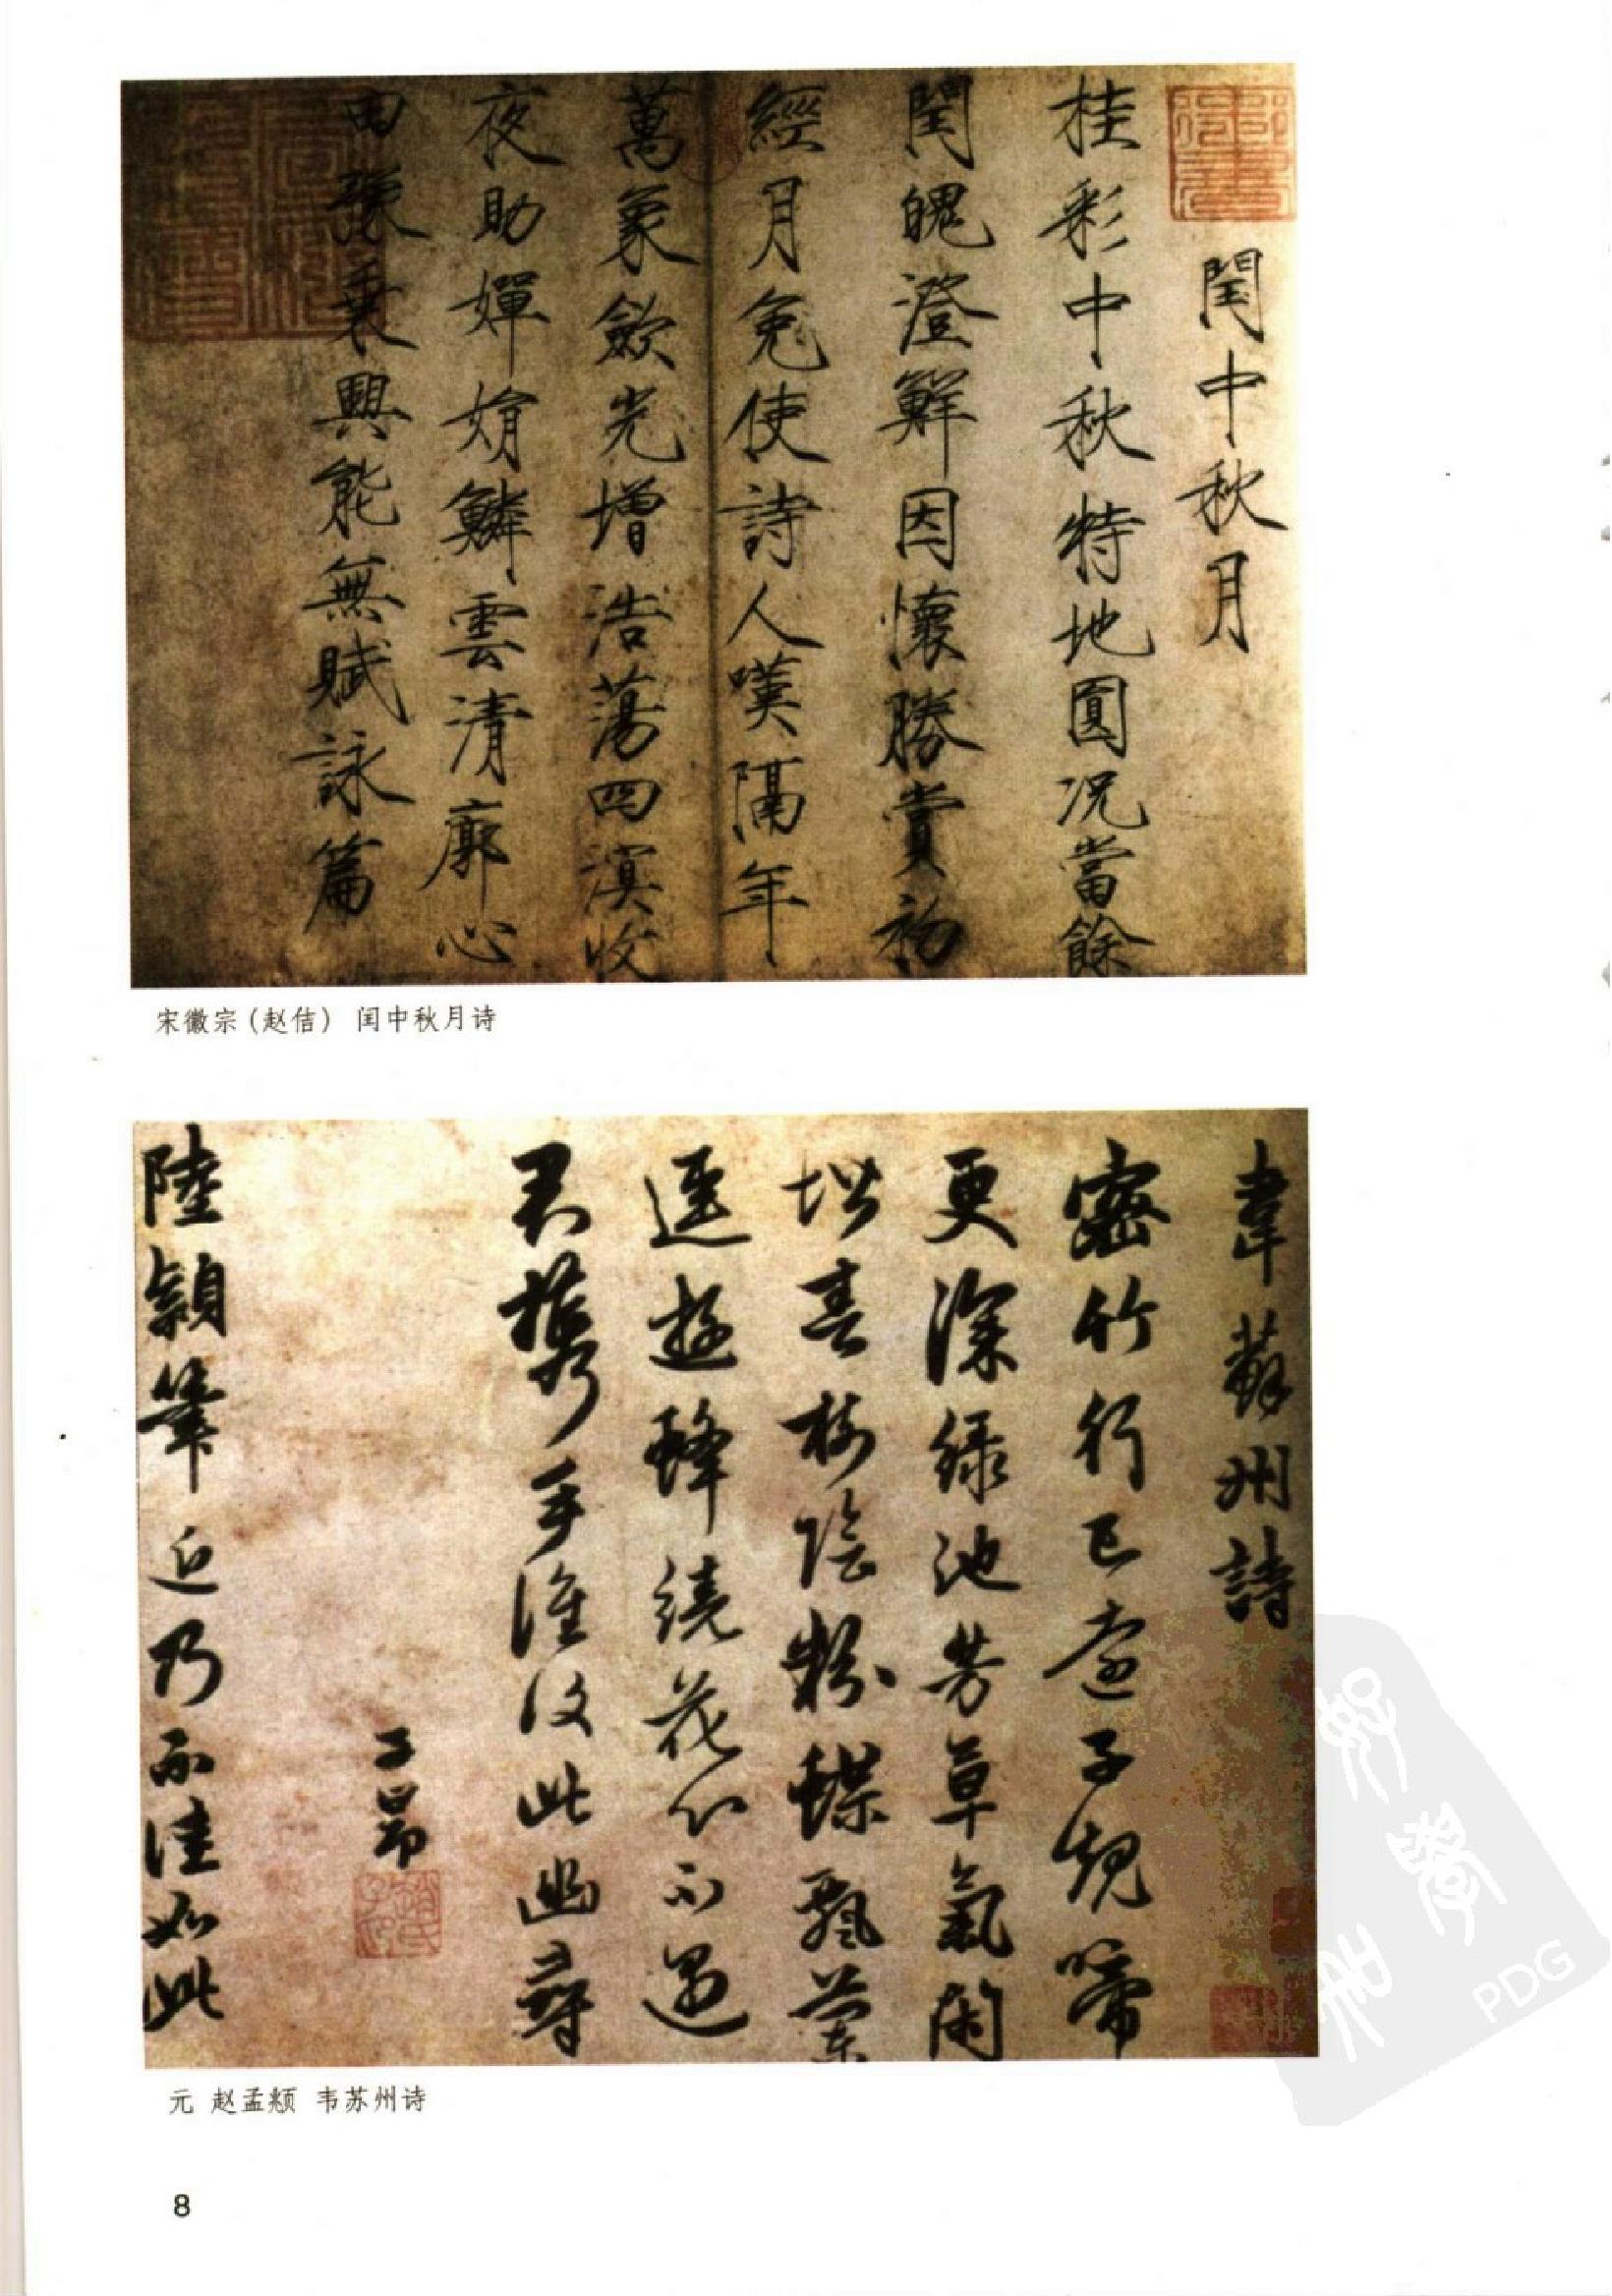 閏中秋月
桂彩中秋特地圓況當餘
閏魄澄鮮因懷勝賞初
經月免使詩人嘆隔年
萬象斂光增浩蕩四溟收
夜助嬋娟鱗雲清廓心
田豫乘興能無賦詠篇
宋徽宗(赵佶) 闰中秋月诗
韋蘇州詩
密竹行已遠子規啼
更深绿池芳草氣閑
堦春樹陰粉蝶飄蘭
逕遊蜂繞花心不遇
君攜手誰復此幽尋
子昂
陸穎筆近乃不佳如此
元 赵孟頫 韦苏州诗
PDG
8